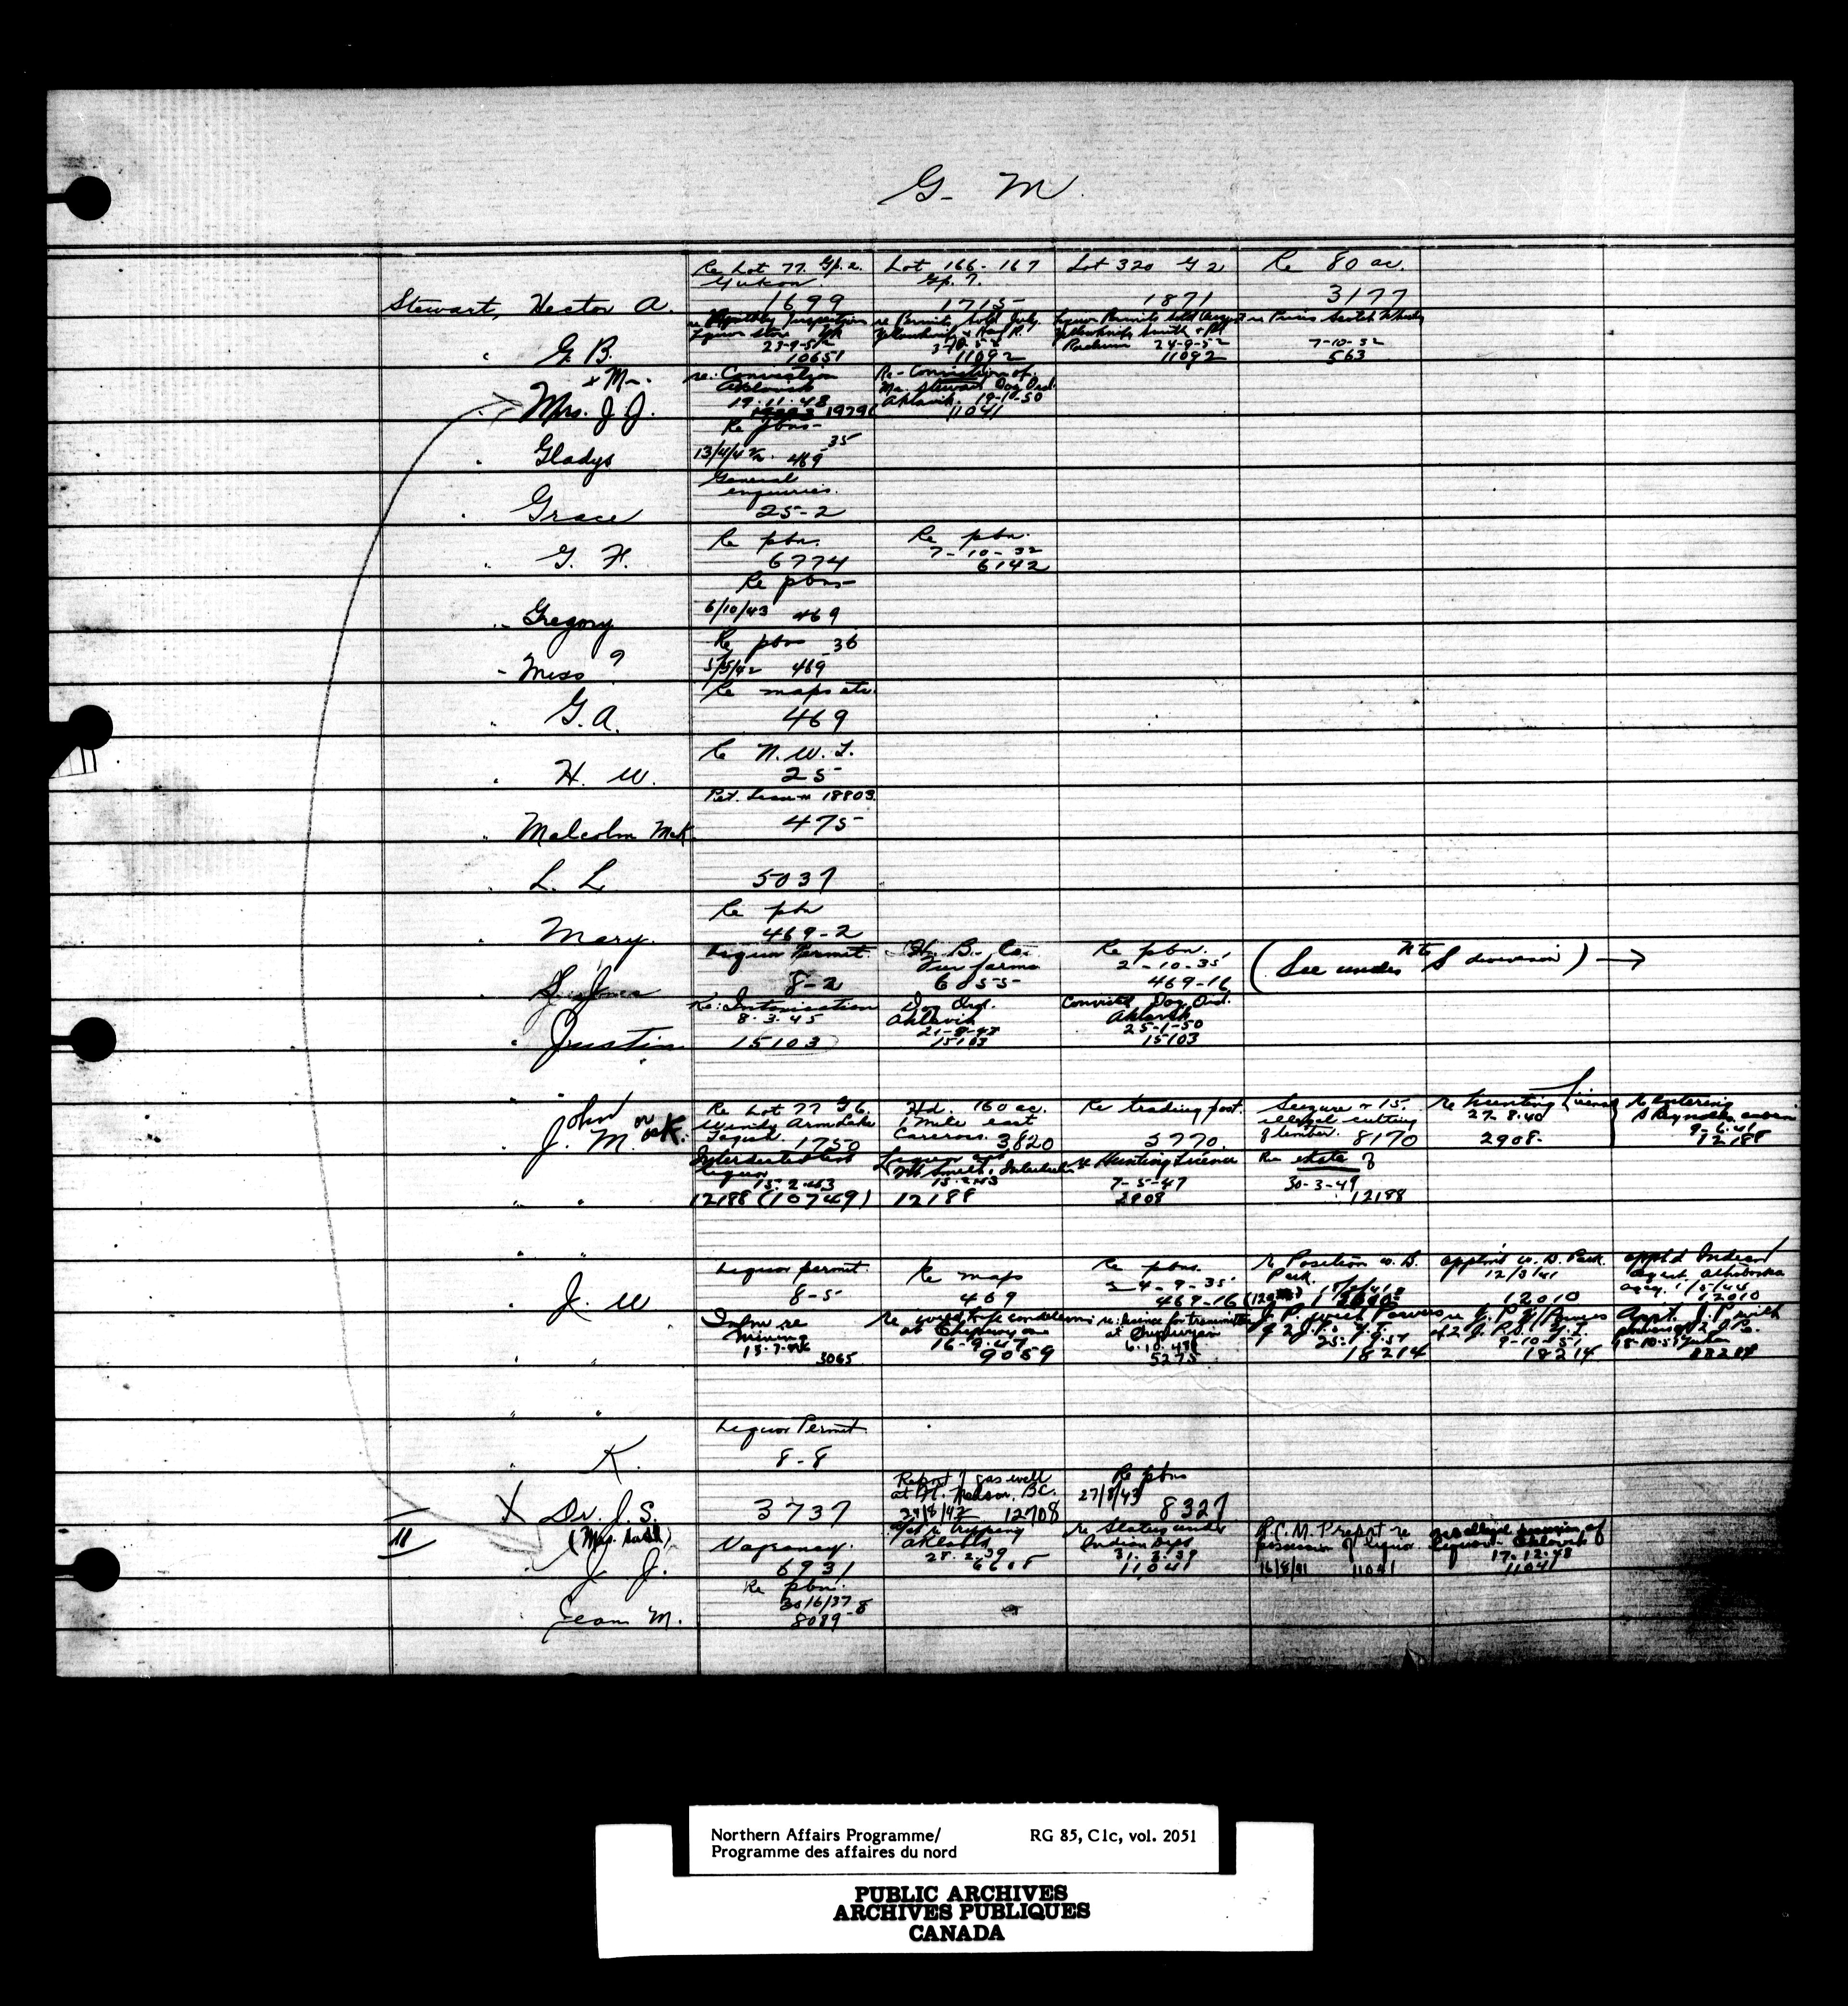 G - M
Re Lot 77. Gp. 2. Yukon. 1699
Lot 166-167 Gp. 7. 1715
Lot 320 G 2 1871
Re 80 ac. 3177
Stewart, Hector A.
re Monthly Inspection Liquor Store 23-9-52 10651
re Permits Sold July. Yellowknife & Hay R. 11092
Liquor Permits Sold August Yellowknife Smith & Pt. Radium 24-9-52 11092
re Prices Scotch Whisky 7-10-52 563
" G. B.
re: Conviction Aklavik 19.11.48
Re - Conviction of Mr. Stewart Dog Ord. Aklavik. 19-10-50 11041
" & Mr. Mrs. J. J.
Re pbns - 13/4/42. 469 35
" Gladys
General enquiries. 25-2
" Grace
Re pbn. 6774
Re pbn. 7-10-32 6142
" G. F.
Re pbns 6/10/43 469
" Gregory
Re pbns 5/5/42 469 36
" Miss ?
Re maps etc. 469
" G. A.
Re N. W. T. 25
" H. W.
Pet. Lease 18803. 475
" Malcolm McK.
" L. L. 5037
Re pbn 469-2
" Mary.
Liquor Permit. 8-2
H. B. Co. Fur farms 6055
Re pbn. 2-10-35 469-16
(See under Nts S division) →
Re: Intoxication 8.3.45 15103
Dog Ord. Aklavik 15103
Convicted Dog Ord. Aklavik 25-1-50 15103
" Justin
Re Lot 77 G 6. Windy Arm Lake Tagish. 1750
Hd. 160 ac. 1 mile east Carcross. 3820
Re trading post. 5770.
Seizure # 15. illegal cutting of timber. 8170
re hunting License 27.8.40 2908.
re entering S Reynolds cabin 9-6-41 12188
" John J. M. or McK.
Interdicted List Liquor 15.2.43 12188 (10749)
12188
re Hunting Licence 7-5-47 2908
Re estate of 30-3-49 12188
" "
" "
Liquor permit. 8-5
Re maps 469
Re pbns. 24-9-35 469-16
re Position W. B. Park.
applint W. B. Park. 12/3/41 12010
appt'd Indian agent Athabaska agcy. 1/5/44 12010
" J. W.
Infm re Mining 3065
at Chipewyan 16-9-47 9059
re: licence for transmitter at Chipewyan 6.10.48 5275
18214
9-10-51 18214
Appt. J. P. with powers of 2 J. Ps.
" "
" "
Liquor Permit 8-8
" K.
3737
Report of gas well at Ft. Nelson, B.C. 24/8/42 12708
Re pbns 27/8/43 8327
X Dr. J. S.
11
Vagrancy. 6931
re trapping Aklavik 28.2.39
re Status under Indian Dept 31.3.39 11041
R. C. M. P report re possession of liquor 16/8/41 11041
re alleged possession of liquor - Aklavik 17.12.48 11041
" J. J.
Re pbn. 30/6/37 8089-8
" Jean M.
Northern Affairs Programme/ RG 85, C1c, vol. 2051
Programme des affaires du nord
PUBLIC ARCHIVES
ARCHIVES PUBLIQUES
CANADA